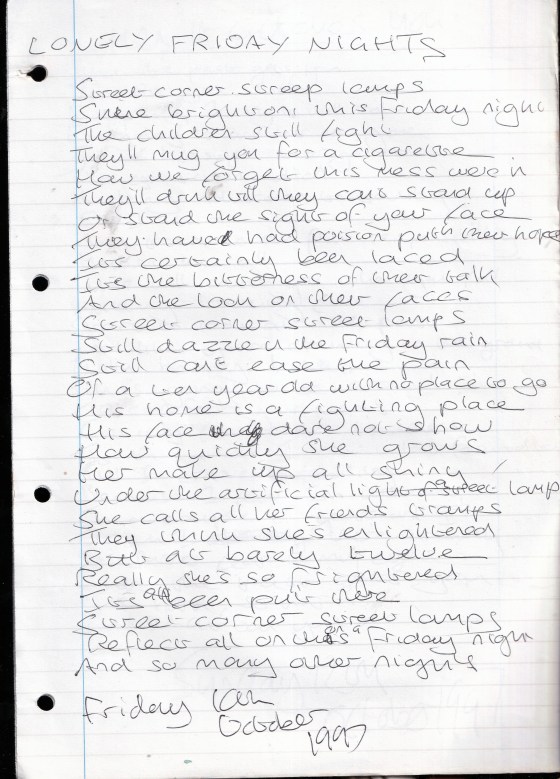 LONELY FRIDAY NIGHTS
Street corner streep lamps
Shine bright on this Friday night
The children still fight
They'll mug you for a cigarette
How we forget this mess were in
They'll drink till they cant stand up
Or stand the sight of your face
They have had poision put in their hopes
Its certainly been laced
Its the bitterness of their talk
And the look on their faces
Street corner street lamps
Still dazzle in the Friday rain
Still cant ease the pain
Of a ten year old with no place to go
His home is a fighting place
His face dare not show
How quickly she grows
Her make up all shiny
Under the artificial light of a street lamp
She calls all her friends tramps
They think she's enlightened
But at barely twelve
Really she's so frightened
Its all been put there
Street corner street lamps
Reflect all on this Friday night
And so many other nights
Friday 10th
October
1997